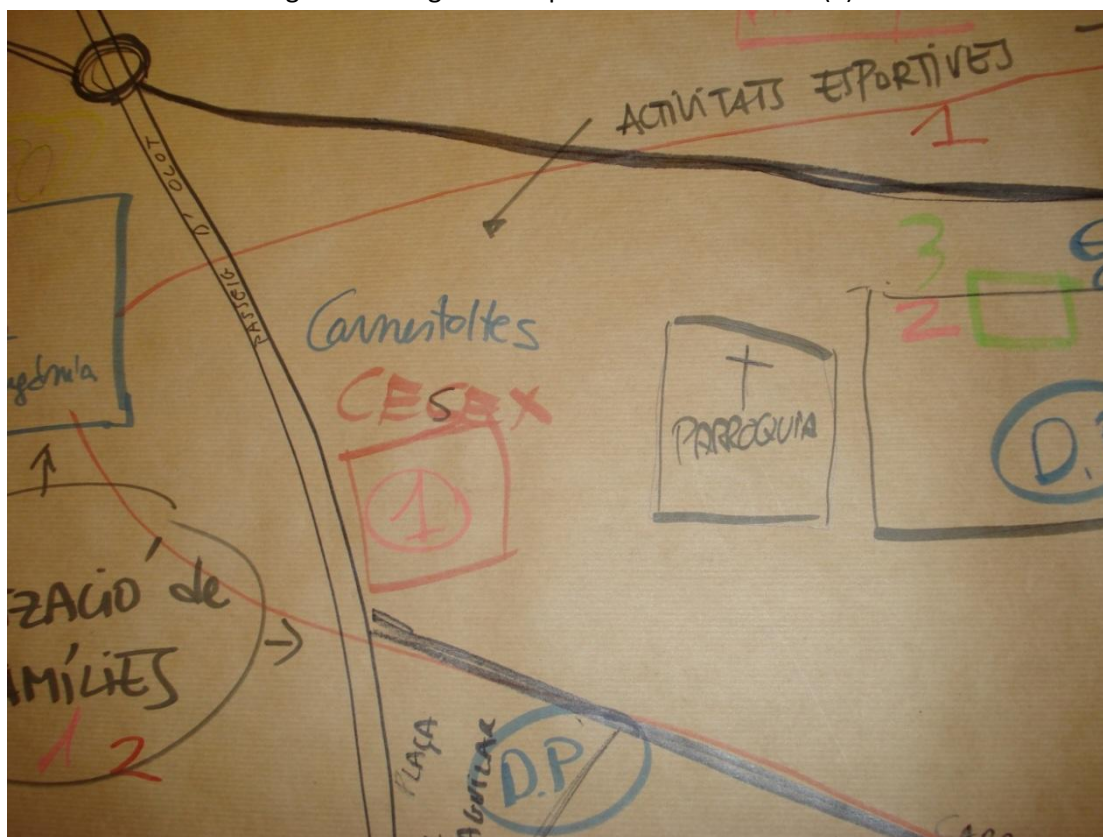 ACTIVITATS ESPORTIVES
1
PASSEIG D'OLOT
3
2
Carnestoltes
CESEX
1
PARROQUIA
D.
EZACIÓ de
AMÍLIES
1 2
PLAÇA
AGUILAR
D.P.